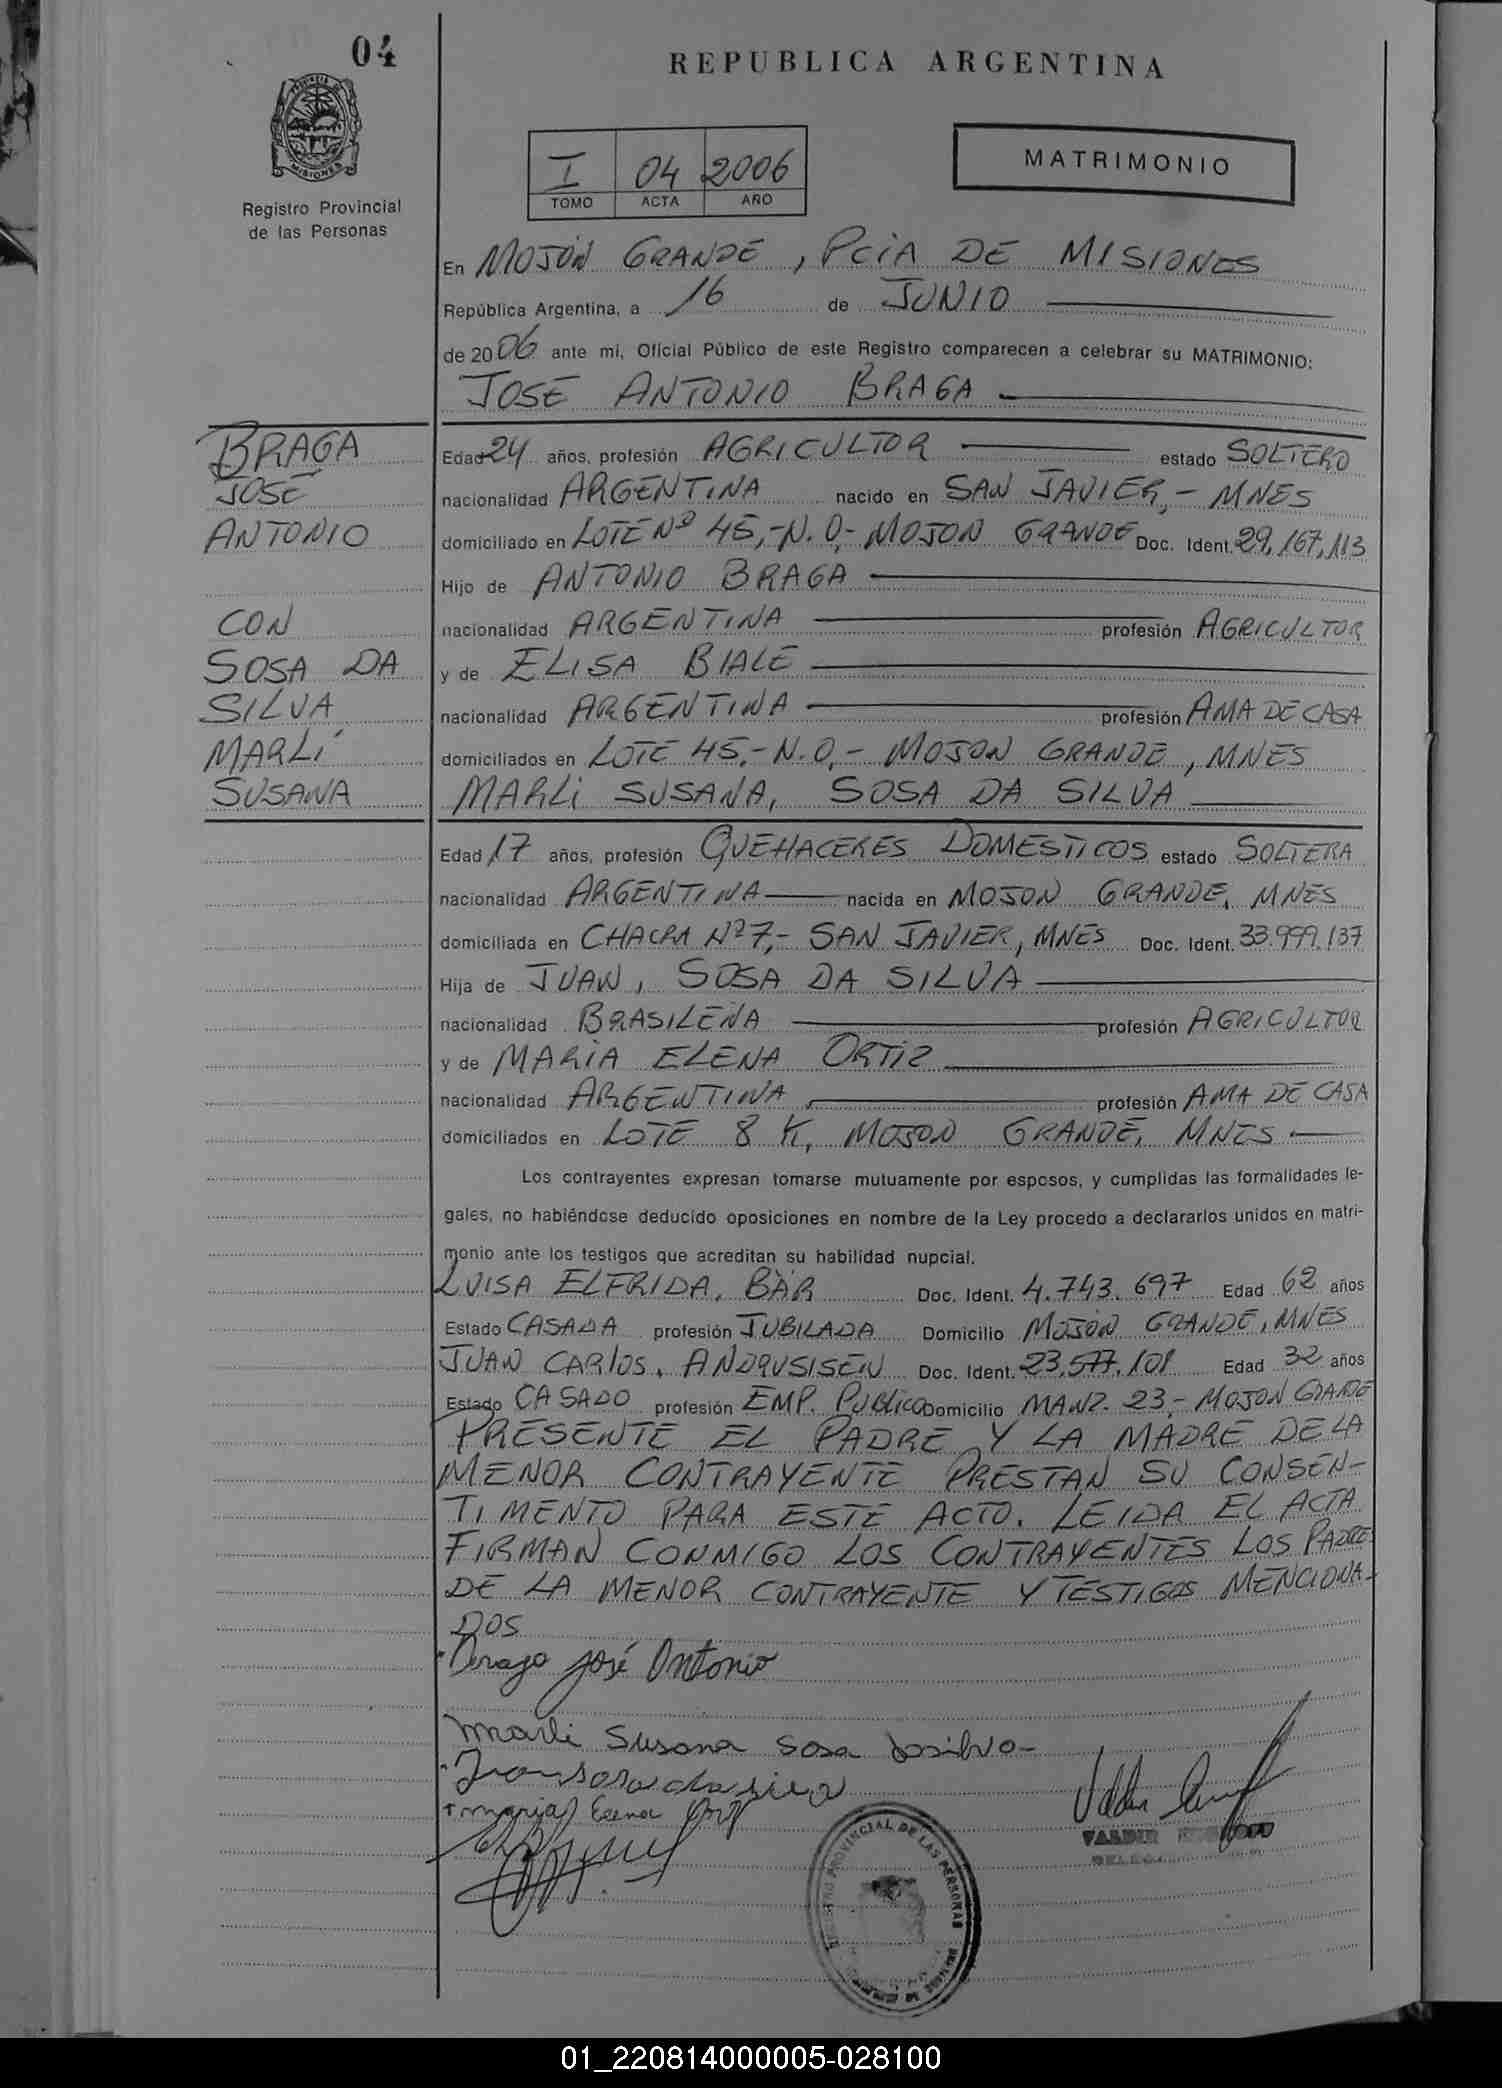 04
REPUBLICA ARGENTINA
PROVINCIA DE
MISIONES
Registro Provincial
de las Personas
I 04 2006
TOMO ACTA AÑO
MATRIMONIO
En MOJÓN GRANDE, PCIA DE MISIONES
República Argentina, a 16 de JUNIO
de 2006 ante mi, Oficial Público de este Registro comparecen a celebrar su MATRIMONIO:
JOSE ANTONIO BRAGA
BRAGA
JOSÉ
ANTONIO
CON
SOSA DA
SILVA
MARLÍ
SUSANA
Edad 24 años, profesión AGRICULTOR estado SOLTERO
nacionalidad ARGENTINA nacido en SAN JAVIER,- MNES
domiciliado en LOTE Nº 45,-N.O,- MOJON GRANDE Doc. Ident. 29.167.113
Hijo de ANTONIO BRAGA
nacionalidad ARGENTINA profesión AGRICULTOR
y de ELISA BIALE
nacionalidad ARGENTINA profesión AMA DE CASA
domiciliados en LOTE 45,-N.O,- MOJON GRANDE, MNES
MARLI SUSANA, SOSA DA SILVA
Edad 17 años, profesión QUEHACERES DOMESTICOS estado SOLTERA
nacionalidad ARGENTINA nacida en MOJON GRANDE, MNES
domiciliada en CHACRA Nº 7,- SAN JAVIER, MNES Doc. Ident. 33.999.137
Hija de JUAN, SOSA DA SILVA
nacionalidad BRASILEÑA profesión AGRICULTOR
y de MARIA ELENA ORTIZ
nacionalidad ARGENTINA profesión AMA DE CASA
domiciliados en LOTE 8 K, MOJON GRANDE, MNES
Los contrayentes expresan tomarse mutuamente por esposos, y cumplidas las formalidades le-
gales, no habiéndose deducido oposiciones en nombre de la Ley procedo a declararlos unidos en matri-
monio ante los testigos que acreditan su habilidad nupcial.
LUISA ELFRIDA, BÄR Doc. Ident. 4.743.697 Edad 62 años
Estado CASADA profesión JUBILADA Domicilio MOJÓN GRANDE, MNES
JUAN CARLOS, ANDRUSISEN Doc. Ident. 23.577.101 Edad 32 años
Estado CASADO profesión EMP. PUBLICO Domicilio MANZ. 23,- MOJON GRANDE
PRESENTE EL PADRE Y LA MADRE DE LA
MENOR CONTRAYENTE PRESTAN SU CONSEN-
TIMENTO PARA ESTE ACTO. LEIDA EL ACTA
FIRMAN CONMIGO LOS CONTRAYENTES LOS PADRE
DE LA MENOR CONTRAYENTE Y TESTIGOS MENCIONA-
DOS
Braga José Antonio
Marli Susana Sosa dasilva
Juan Sosa da silva
Maria Elena Ortiz
VALDIR
REGISTRO PROVINCIAL DE LAS PERSONAS
01_220814000005-028100